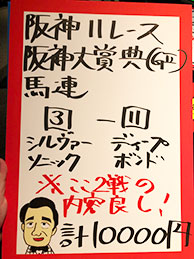 阪神11レース
阪神大賞典(GII)
馬連
3 — 11
シルヴァー ディープ
ソニック ボンド
※ここ2戦の
内容良し!
計10000円